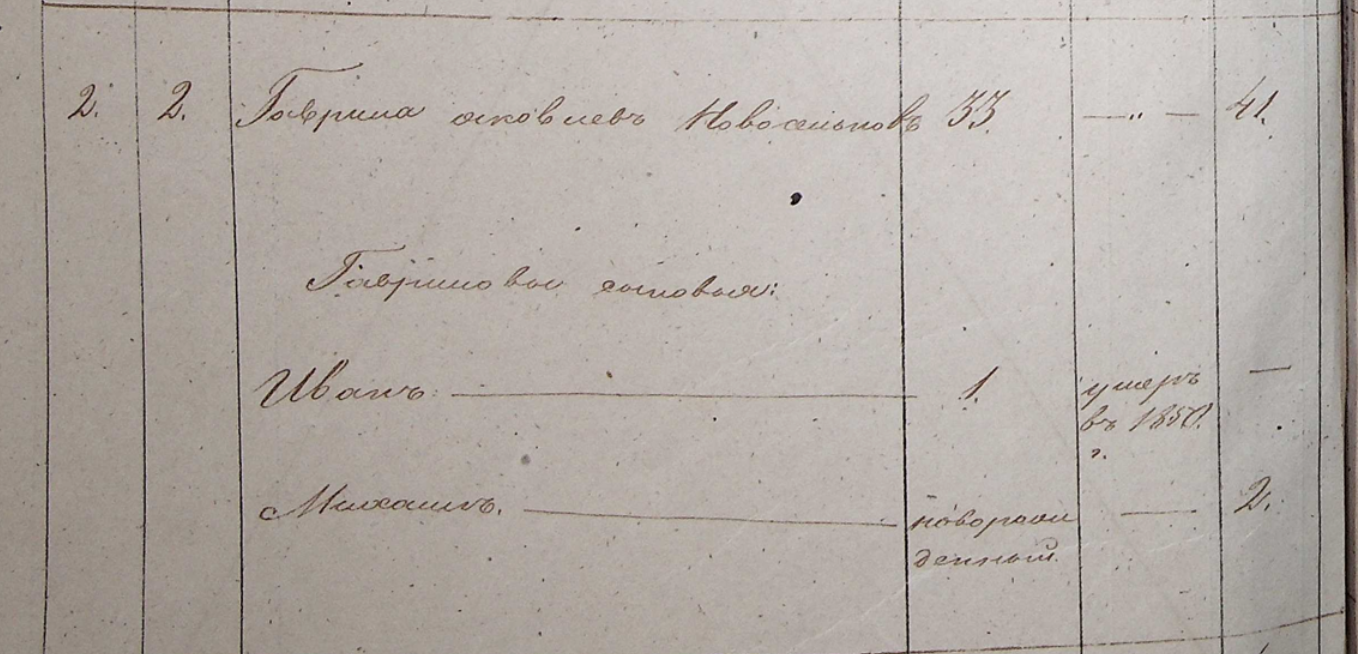 2. 2. Гаврила яковлевъ Новосельцовъ 33. —„— 41.
Гавриловы сыновья:
Иванъ — 1. умеръ —
въ 1850.
г.
Михаилъ. — новорож — 2.
денный.